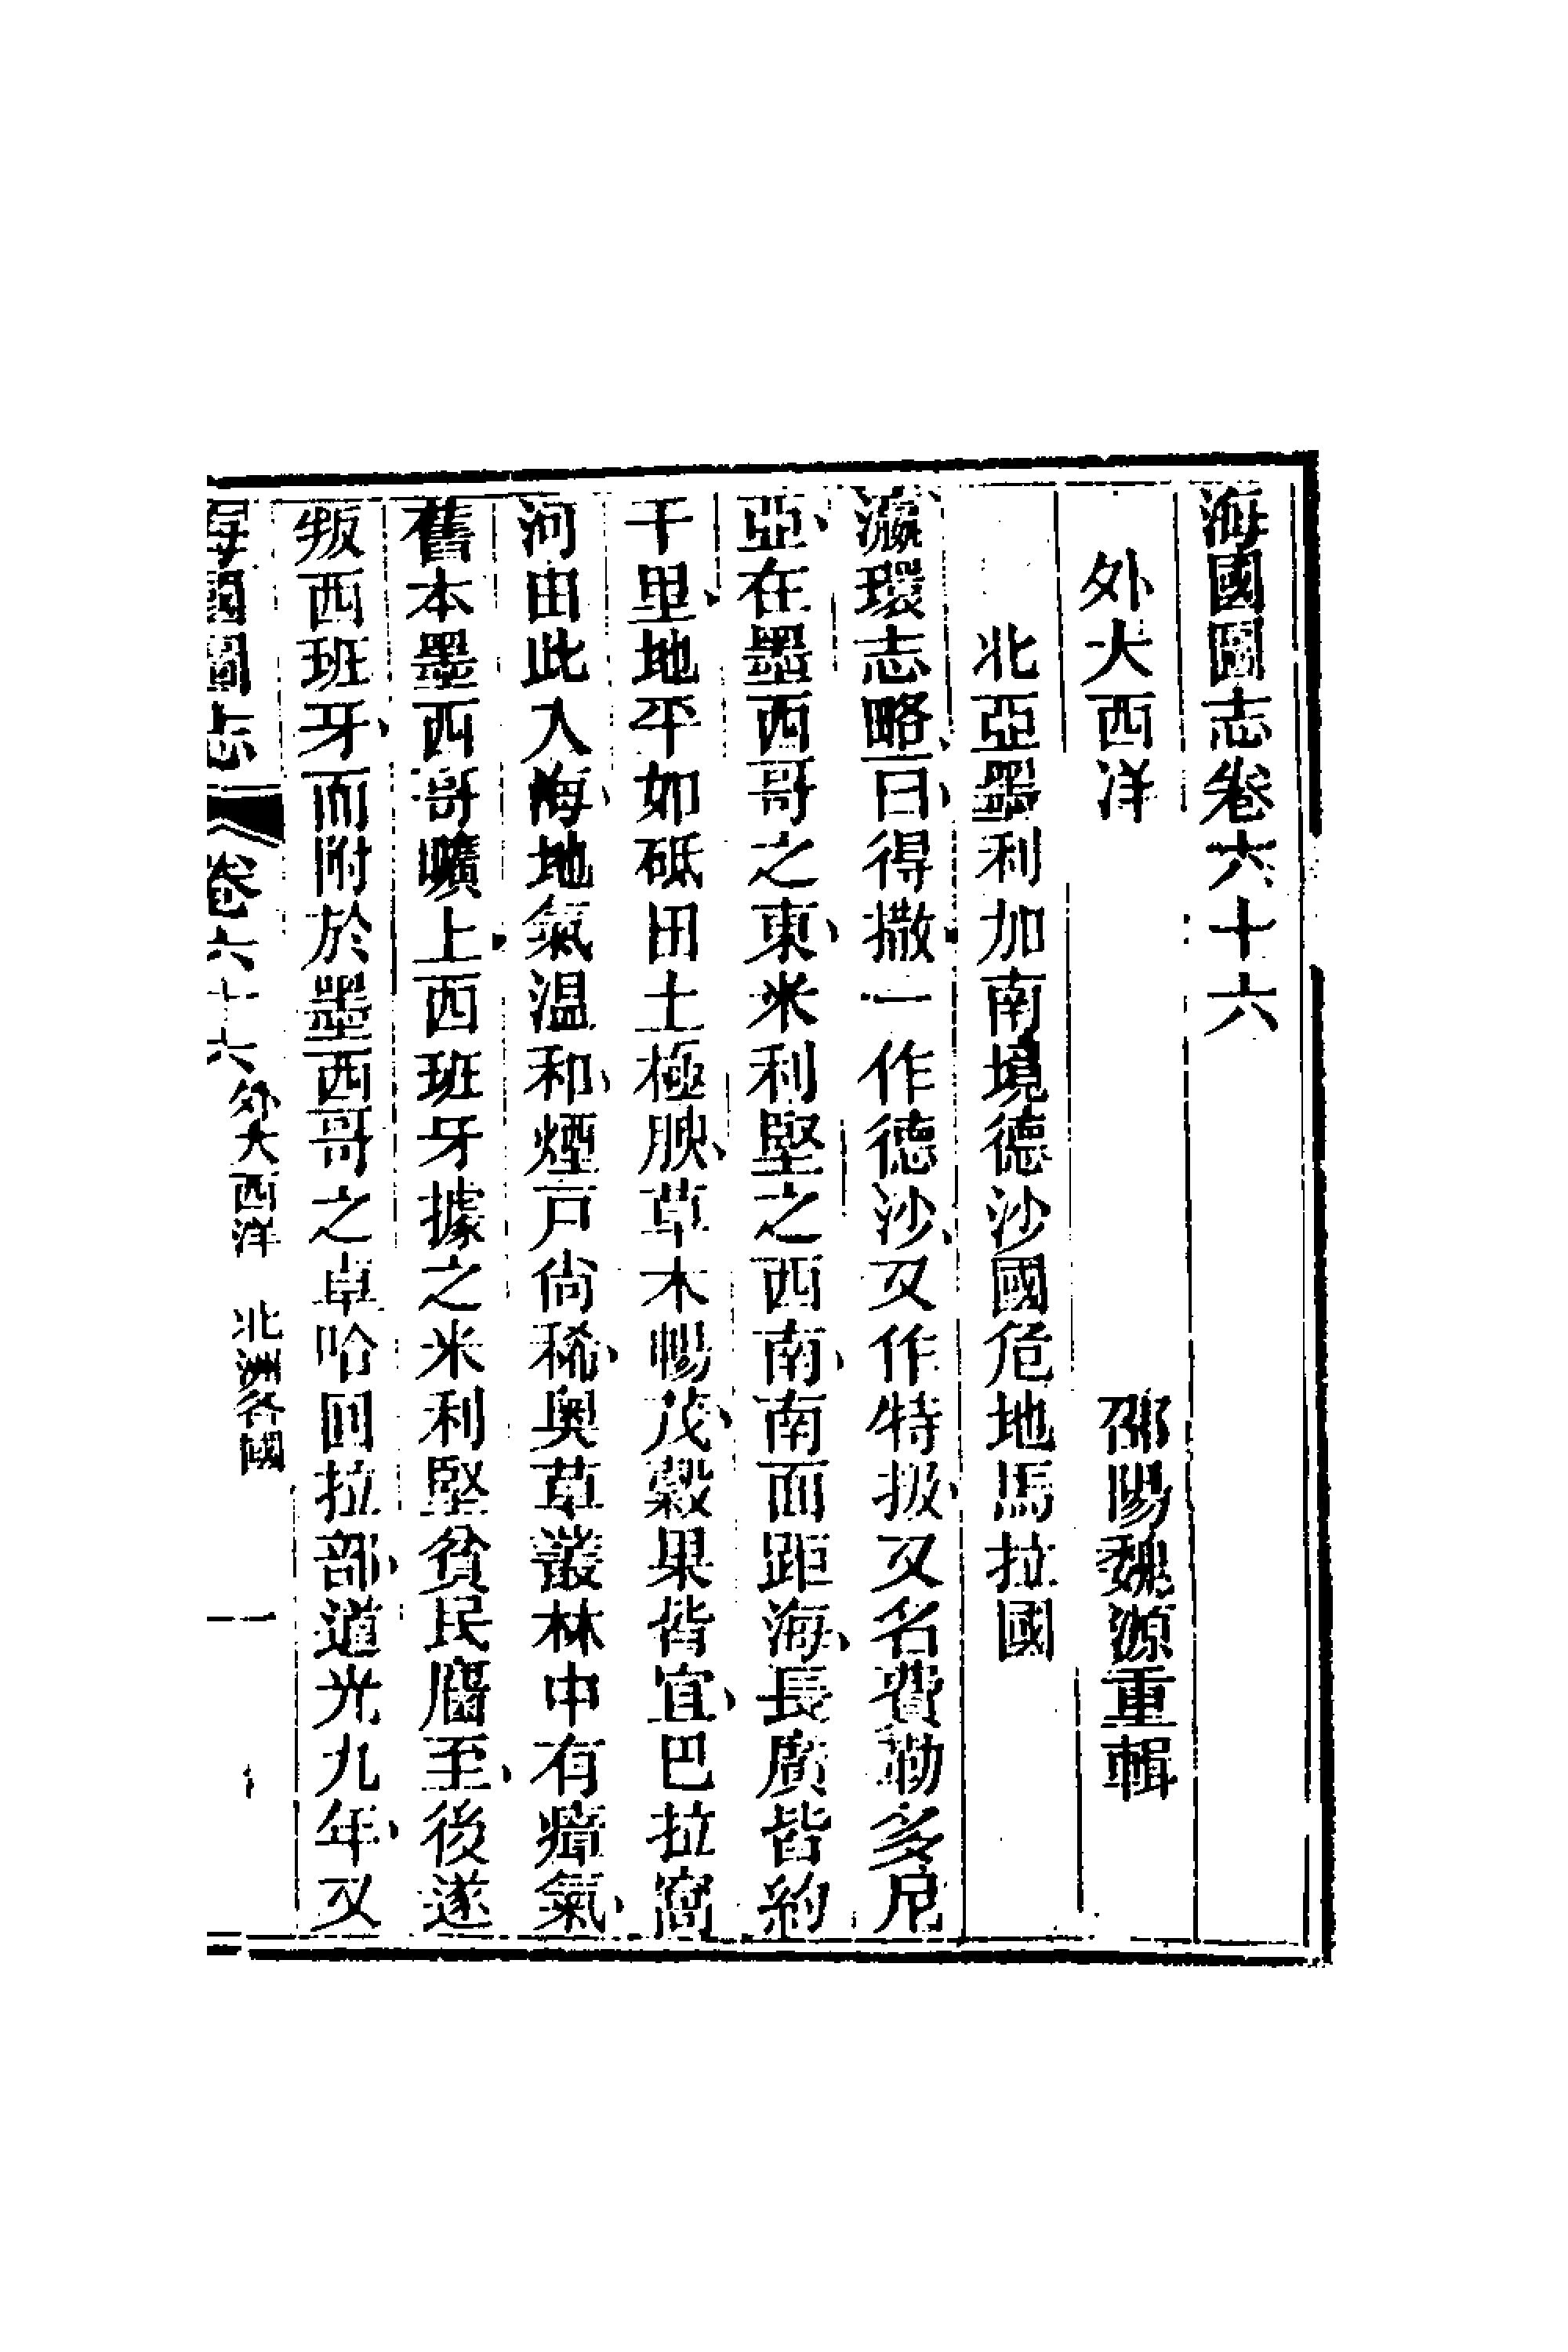 海國圖志卷六十六
外大西洋 邵陽魏源重輯
北亞墨利加南境德沙國危地馬拉國
瀛環志略曰得撒一作德沙又作特扱又名費勒多尼
亞在墨西哥之東米利堅之西南南面距海長廣皆約
千里地平如砥田土極腴草木暢茂穀果皆宜巴拉窩
河由此入海地氣温和煙戸尙稀奥草叢林中有瘴氣
舊本墨西哥曠土西班牙據之米利堅貧民廧至後遂
叛西班牙而附於墨西哥之卓哈回拉部道光九年又
海國圖志 卷六十六 外大西洋 北洲各國 一